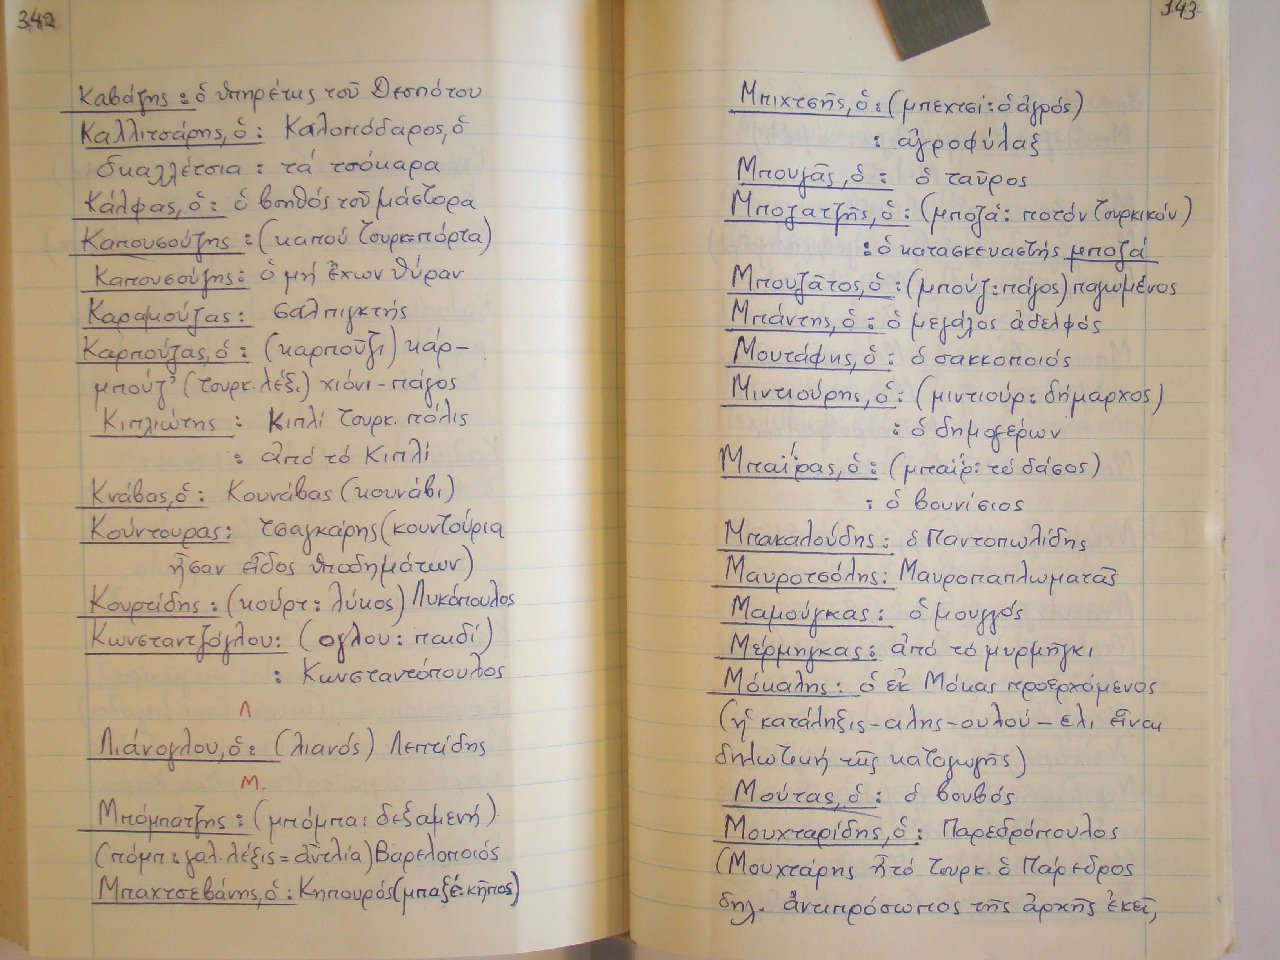 342
Καβάζης : ὁ ὑπηρέτης τοῦ Δεσπότου
Καλλιτσάρης, ὁ : Καλοπόδαρος, ὁ
σκαλλέτσια : τά τσόκαρα
Κάλφας, ὁ : ὁ βοηθός τοῦ μάστορα
Καπουσούζης : (καπού τουρκ=πόρτα)
Καπουσούζης : ὁ μή ἔχων θύραν
Καραμούζας : σαλπιγκτής
Καρπούζας, ὁ : (καρποῦζι) κάρ-
μπούζ' (τουρκ. λέξ.) χιόνι-πάγος
Κιπλιώτης : Κιπλί τουρκ. πόλις
: ἀπό τό Κιπλί
Κνάβας, ὁ : Κουνάβας (κουνάβι)
Κούντουρας : τσαγκάρης (κουντούρια
ἦσαν εἶδος ὑποδημάτων)
Κουρτίδης : (κούρτ : λύκος) Λυκόπουλος
Κωνσταντζόγλου : (ογλου : παιδί)
: Κωνσταντόπουλος
Λ
Λιάνογλου, ὁ : (λιανός) Λεπτίδης
Μ.
Μπόμπατζης : (μπόμπα : δεξαμενή)
(πόμπ : γαλ. λέξις = ἀντλία) Βαρελοποιός
Μπαχτσεβάνης, ὁ : Κηπουρός (μπαξέ : κῆπος)
343
Μπιχτσῆς, ὁ : (μπεχτσί : ὁ ἀγρός)
: ἀγροφύλαξ
Μπουγᾶς, ὁ : ὁ ταῦρος
Μποζατζῆς, ὁ : (μποζά : ποτόν τουρκικόν)
: ὁ κατασκευαστής μποζά
Μπουζᾶτος, ὁ : (μπούζ : πάγος) παγωμένος
Μπάντης, ὁ : ὁ μεγάλος ἀδελφός
Μουτάφης, ὁ : ὁ σακκοποιός
Μιντιούρης, ὁ : (μιντιούρ : δήμαρχος)
: ὁ δημογέρων
Μπαΐρας, ὁ : (μπαΐρ : τό δάσος)
: ὁ βουνίσιος
Μπακαλούδης : ὁ Παντοπωλίδης
Μαυροτσόλης : Μαυροπαπλωματᾶς
Μαμούγκας : ὁ μουγγός
Μέρμηγκας : ἀπό τό μυρμῆγκι
Μόκαλης : ὁ ἐκ Μόκας προερχόμενος
(ἡ κατάληξις -αλης -ουλού - ελι εἶναι
δηλωτική τῆς καταγωγῆς)
Μούτας, ὁ : ὁ βουβός
Μουχταρίδης, ὁ : Παρεδρόπουλος
(Μουχτάρης ἦτό τουρκ. ὁ Πάρεδρος
δηλ. ἀντιπρόσωπος τῆς ἀρχῆς ἐκεῖ,